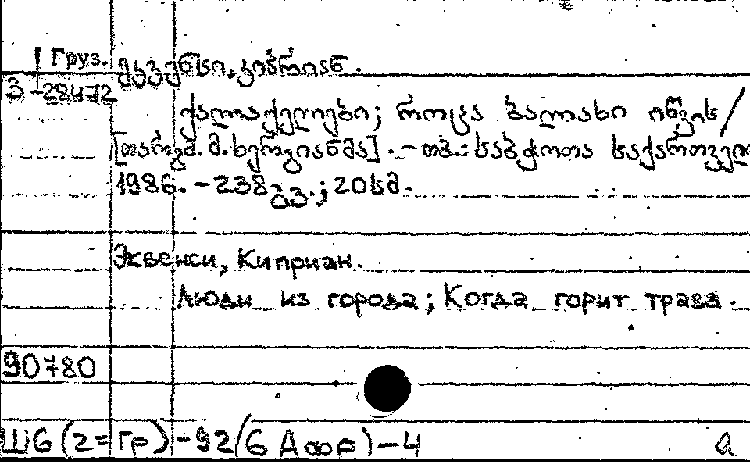 Груз. ეკვენსი, კიპრიან.
3-28472
ქალაქელები; როცა ბალახი იწვის/
[თარგმ. მ. ხერგიანმა]. – თბ.: საბჭოთა საქართველო
1986. – 238 გვ.; 20 სმ.
Эквенси, Киприан.
Люди из города; Когда горит трава.
90780
Ш6(2=Гр)-92/6 Афр)-4 а